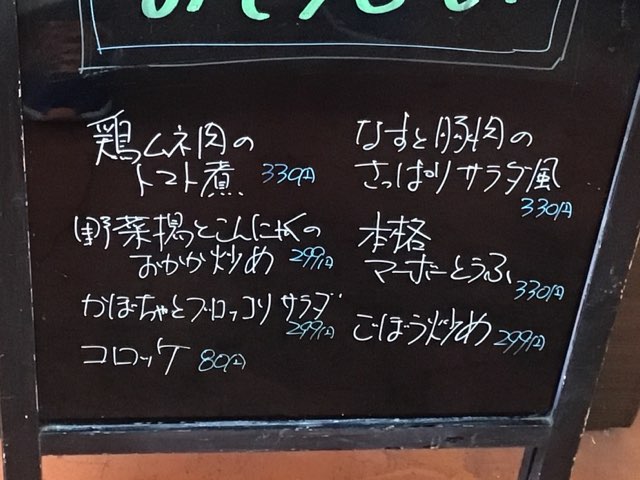 鶏ムネ肉の
トマト煮 330円
野菜揚とこんにゃくの
おかか炒め 299円
かぼちゃとブロッコリサラダ
299円
コロッケ 80円
なすと豚肉の
さっぱりサラダ風
330円
本格
マーボーとうふ
330円
ごぼう炒め 299円